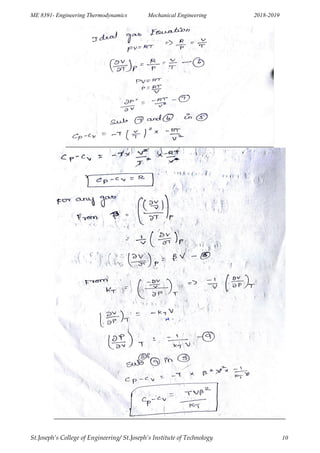 ME 8391- Engineering Thermodynamics Mechanical Engineering 2018-2019
Ideal gas Equation
PV=RT => R/P = V/T
(∂V/∂T)P = R/P = V/T — ⑥
PV=RT
P = RT/V
∂P/∂V = -RT/V² — ⑦
Sub ⑦ and ⑥ in ⑤
Cp-Cv = -T (V/T)² × -RT/V²
Cp-Cv = -T × V²/T² × -RT/V²
Cp-Cv = R
For any gas
From β = ((∂V/V)/∂T)P
= 1/V (∂V/∂T)P
(∂V/∂T)P = βV — ⑧
From
KT = ((-∂V/V)/∂P)T => -1/V (∂V/∂P)T
(∂V/∂P)T = -KTV
(∂P/∂V)T = -1/KTV — ⑨
Sub ⑨ in
Cp-Cv = -T × β²V² × -1/KTV
Cp-Cv = TVβ²/KT
St.Joseph's College of Engineering/ St.Joseph's Institute of Technology 10